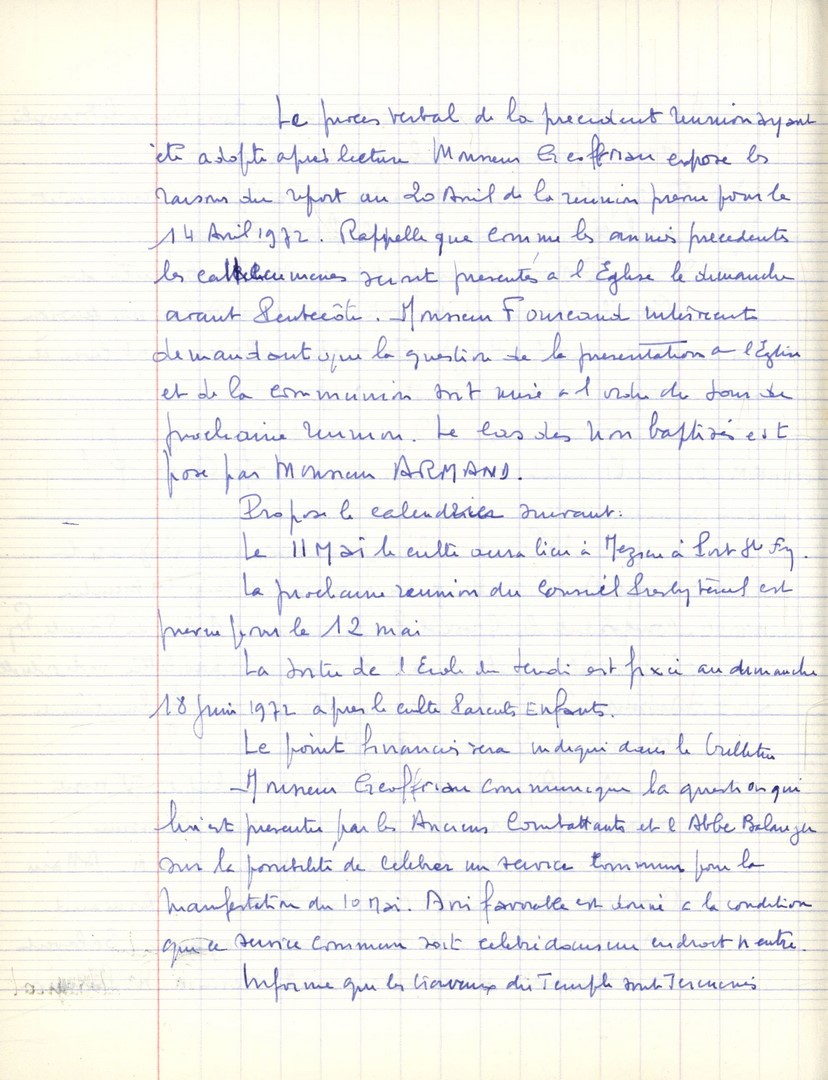 Le procès verbal de la precedent reunion ayant
été adopté après lecture Monsieur Geoffrian expose les
raisons du report au 20 Avril de la reunion prevue pour le
14 Avril 1972. Rappelle que comme les années precedentes
les catechumenes seront presentés a l'Eglise le dimanche
avant Pentecôte. Monsieur Fourcaud intervient
demandant que la question de la presentation a l'Eglise
et de la communion soit mise a l'ordre du jour de
prochaine reunion. Le cas des non baptisés est
posé par Monsieur ARMAND.
Propose le calendrier suivant:
Le 11 Mai le culte aura lieu à à Port Ste Foy.
La prochaine reunion du Conseil Presbytéral est
prevue pour le 12 mai
La sortie de l'Ecole du Jeudi est fixée au dimanche
18 Juin 1972 apres le culte Parents Enfants.
Le point financier sera indiqué dans le Bulletin
Monsieur Geoffrian communique la question qui
lui est presentée par les Anciens Combattants et l'Abbé
sur la possibilité de celebrer un service commun pour la
manifestation du 10 Mai. Avis favorable est donné a la condition
que ce service commun soit celebré dans un endroit neutre.
Informe que les travaux du Temple sont Terminés